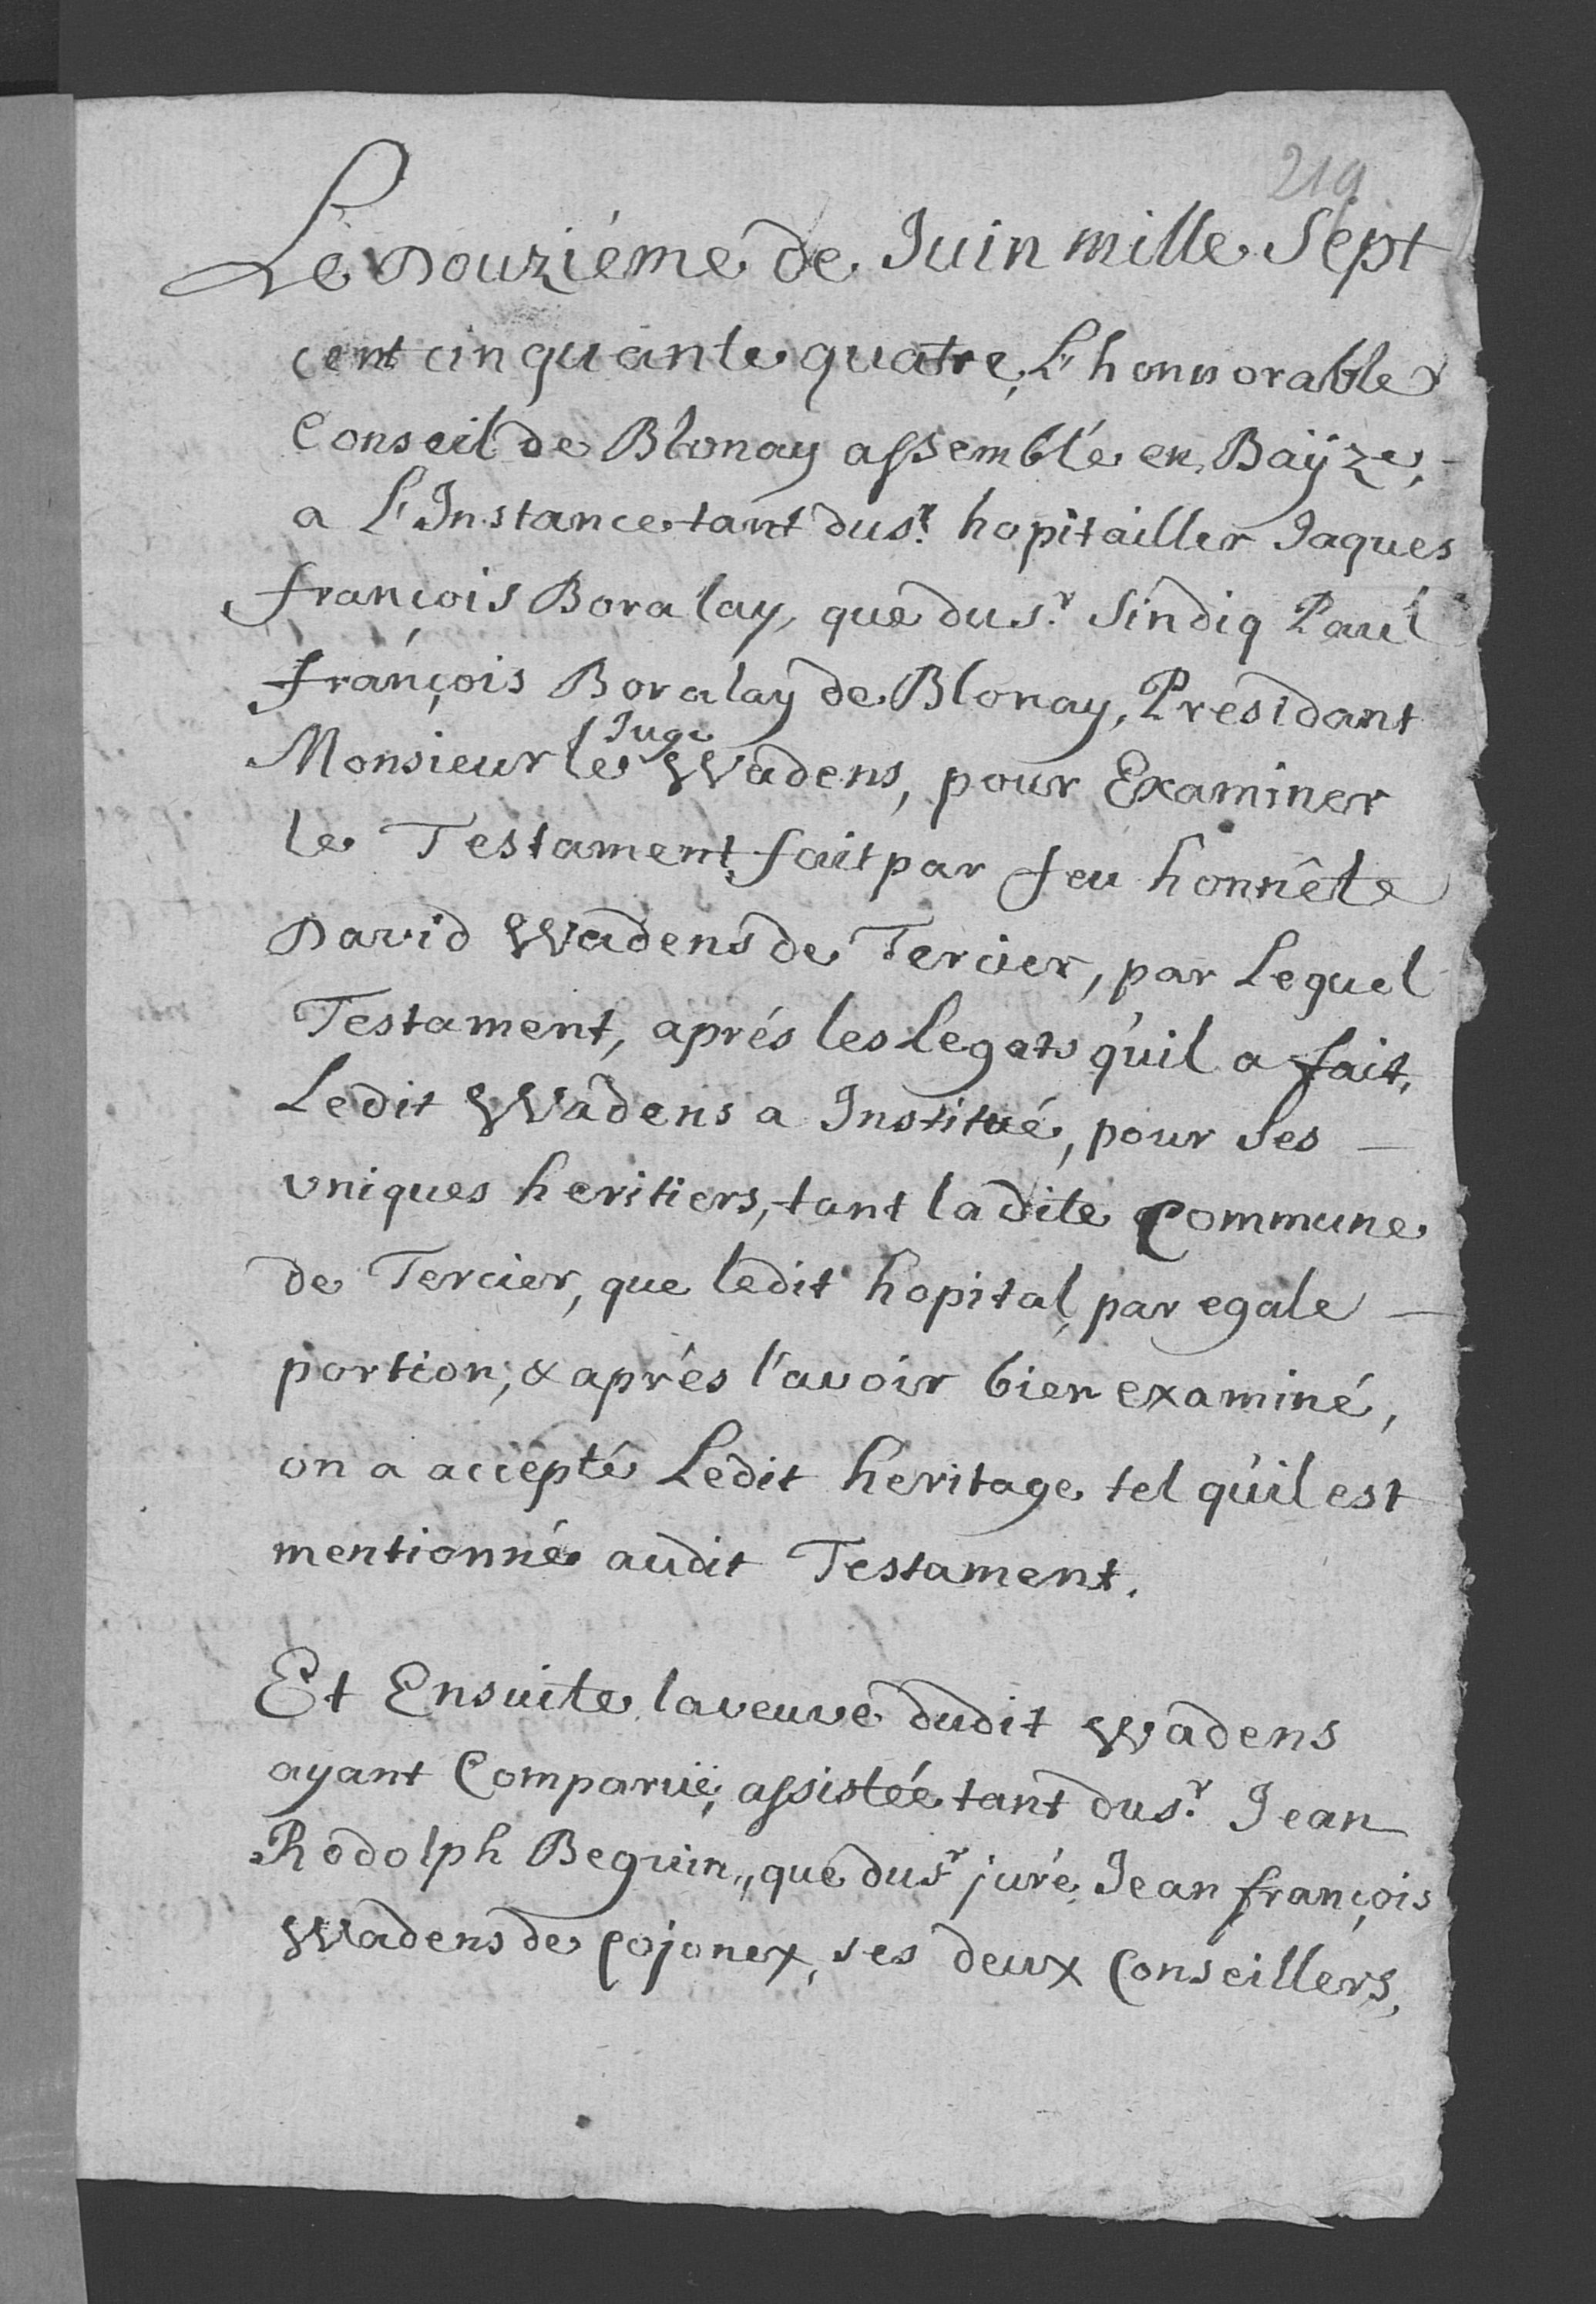 219
Le Douziéme de Juin mille Sept
cent cinquante quatre, L'honnorable
Conseil de Blonay assemblé en Baÿze,
a L'Instance tant du sr. hopitailler Jaques
françois Boralay, que du sr. Sindiq Paul
françois Boralay de Blonay, Presidant
Monsieur le Juge Wadens, pour Examiner
le Testament fait par feu honnête
David Wadens de Tercier, par Lequel
Testament, aprés les Legats qu'il a fait,
Ledit Wadens a Institué, pour Ses
uniques heritiers, tant ladite Commune
de Tercier, que ledit hopital, par egale
portion, & aprés l'avoir bien examiné,
on a accepté Ledit heritage tel qu'il est
mentionné audit Testament.
Et Ensuite la veuve dudit Wadens
ayant Comparüe, assistée tant du sr. Jean
Rodolph Beguin, que du sr juré Jean françois
Wadens de Cojonex, ses deux Conseillers,